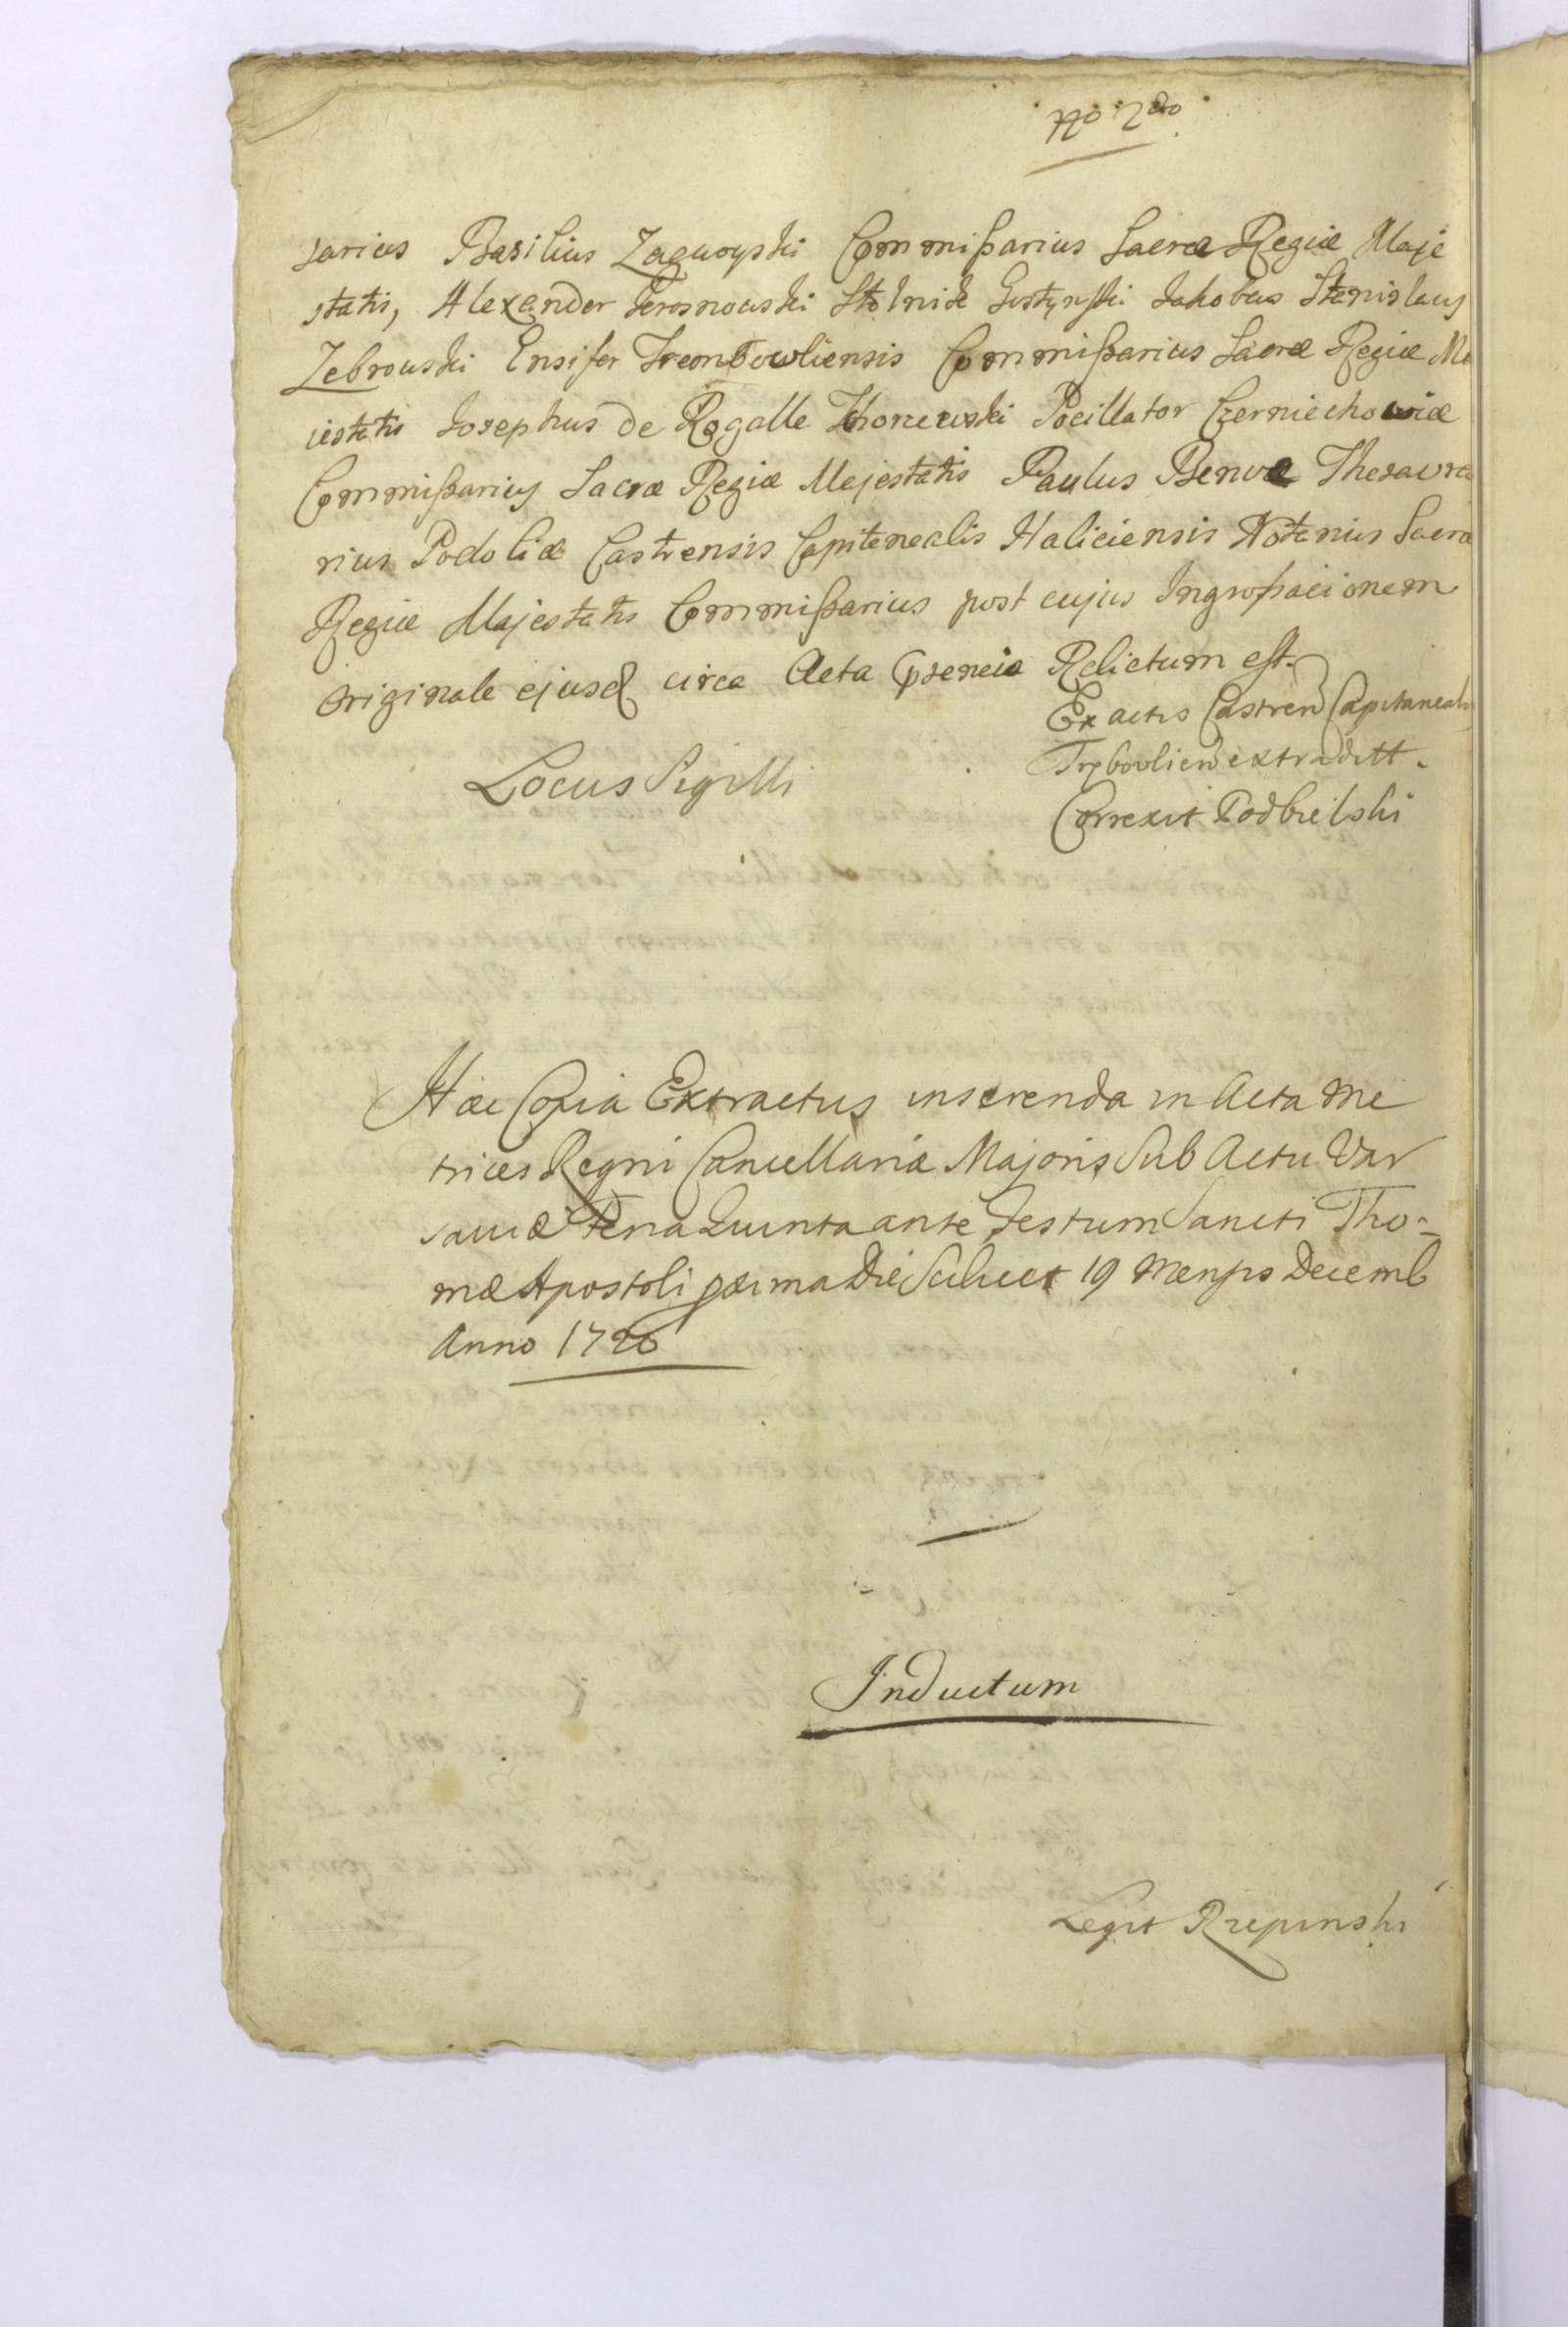 No 2do
sarius Basilius Zagwoyski Commißarius Sacræ Regiæ Maje
statis, Alexander Jerosnowski Stolnik Gostynski Jakobus Stanislaus
Zebrowski Ensifer Trembowliensis Commißarius Sacræ Regiæ Ma
iestatis Josephus de Rogalle Pocillator Czerniechoviæ
Commißarius Sacræ Regiæ Majestatis Paulus Benoe Thesaura
rius Podoliæ Castrensis Capitanealis Haliciensis Notarius Sacræ
Regiæ Majestatis Commißarius post cujus Ingroßacionem
originale ejusd circa Acta Relictum est.
Ex actis Castren Capitaneal
Trybovlien extraditt.
Locus Sigilli
Correxit Podbielski
Hæc Copia Extractus inserenda in Acta Me
trices Regni Cancellariæ Majoris Sub Actu Var
saviæ Feria Quinta ante Festum Sancti Tho-
mæ Apostoli Die Scilicet 19 Mensis Decemb
Anno 1726
Inductum
Legit Rzepinski